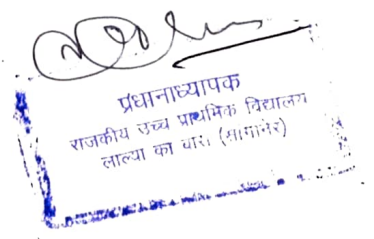 प्रधानाध्यापक
राजकीय उच्च प्राथमिक विद्यालय
लाल्या का बास (सांगानेर)